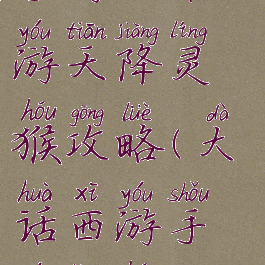 yóu tiān jiàng líng
游天降灵
hóu gōng lüè dà
猴攻略(大
huà xī yóu shǒu
话西游手